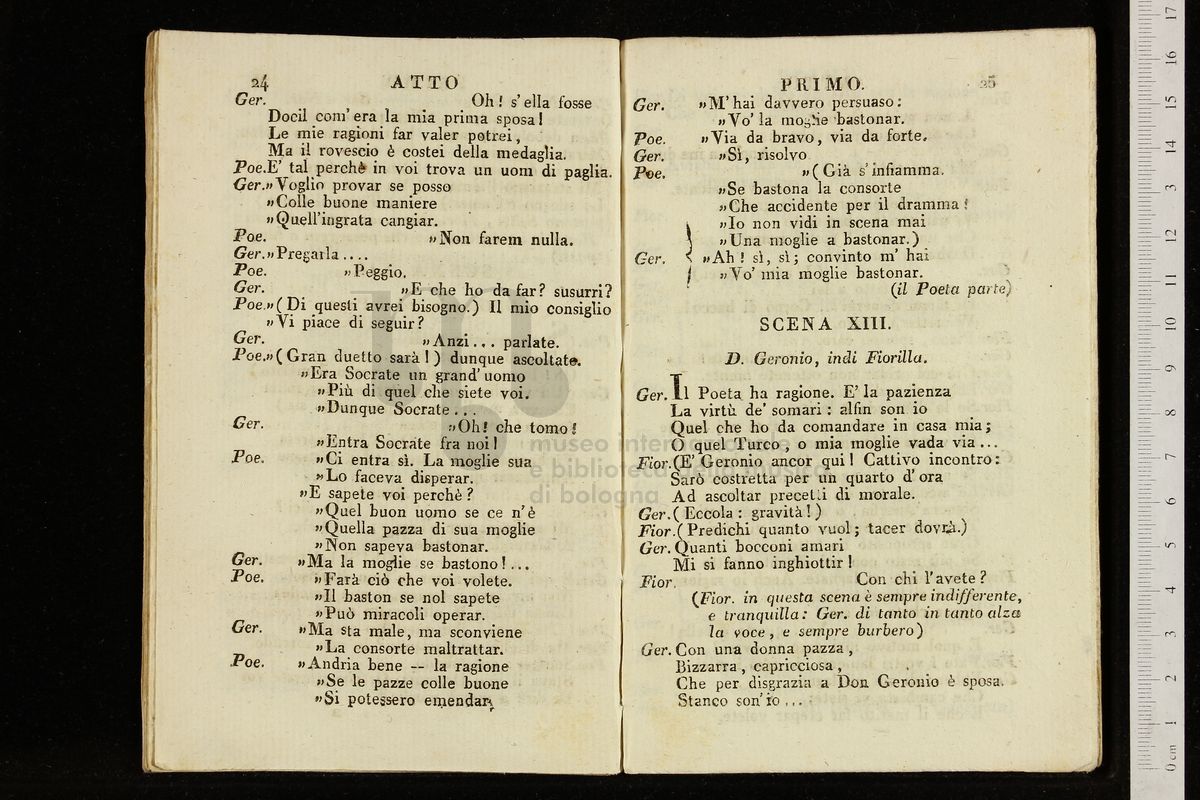 24 ATTO
Ger. Oh! s'ella fosse
Docil com' era la mia prima sposa!
Le mie ragioni far valer potrei,
Ma il rovescio è costei della medaglia.
Poe. E' tal perchè in voi trova un uom di paglia.
Ger. »Voglio provar se posso
»Colle buone maniere
»Quell'ingrata cangiar.
Poe. »Non farem nulla.
Ger. »Pregarla....
Poe. »Peggio.
Ger. »E che ho da far? susurri?
Poe. »(Di questi avrei bisogno.) Il mio consiglio
»Vi piace di seguir?
Ger. »Anzi... parlate.
Poe. »(Gran duetto sarà!) dunque ascoltate.
»Era Socrate un grand' uomo
»Più di quel che siete voi.
»Dunque Socrate...
Ger. »Oh! che tomo!
»Entra Socrate fra noi!
Poe. »Ci entra sì. La moglie sua
»Lo faceva disperar.
»E sapete voi perchè?
»Quel buon uomo se ce n'è
»Quella pazza di sua moglie
»Non sapeva bastonar.
Ger. »Ma la moglie se bastono!...
Poe. »Farà ciò che voi volete.
»Il baston se nol sapete
»Può miracoli operar.
Ger. »Ma sta male, ma sconviene
»La consorte maltrattar.
Poe. »Andria bene -- la ragione
»Se le pazze colle buone
»Si potessero emendar,
PRIMO. 25
Ger. »M' hai davvero persuaso:
»Vo' la moglie bastonar.
Poe. »Via da bravo, via da forte.
Ger. »Sì, risolvo
Poe. »(Già s'infiamma.
»Se bastona la consorte
»Che accidente per il dramma!
»Io non vidi in scena mai
»Una moglie a bastonar.)
Ger. »Ah! sì, sì; convinto m' hai
»Vo' mia moglie bastonar.
(il Poeta parte)
SCENA XIII.
D. Geronio, indi Fiorilla.
Ger. Il Poeta ha ragione. E' la pazienza
La virtù de' somari: alfin son io
Quel che ho da comandare in casa mia;
O quel Turco, o mia moglie vada via...
Fior. (E' Geronio ancor qui! Cattivo incontro:
Sarò costretta per un quarto d'ora
Ad ascoltar precetti di morale.
Ger. (Eccola: gravità!)
Fior. (Predichi quanto vuol; tacer dovrà.)
Ger. Quanti bocconi amari
Mi si fanno inghiottir!
Fior. Con chi l'avete?
(Fior. in questa scena è sempre indifferente,
e tranquilla: Ger. di tanto in tanto alza
la voce, e sempre burbero)
Ger. Con una donna pazza,
Bizzarra, capricciosa,
Che per disgrazia a Don Geronio è sposa.
Stanco son' io...
museo internazionale
e biblioteca della musica
di bologna
0 cm 1 2 3 4 5 6 7 8 9 10 11 12 13 14 15 16 17